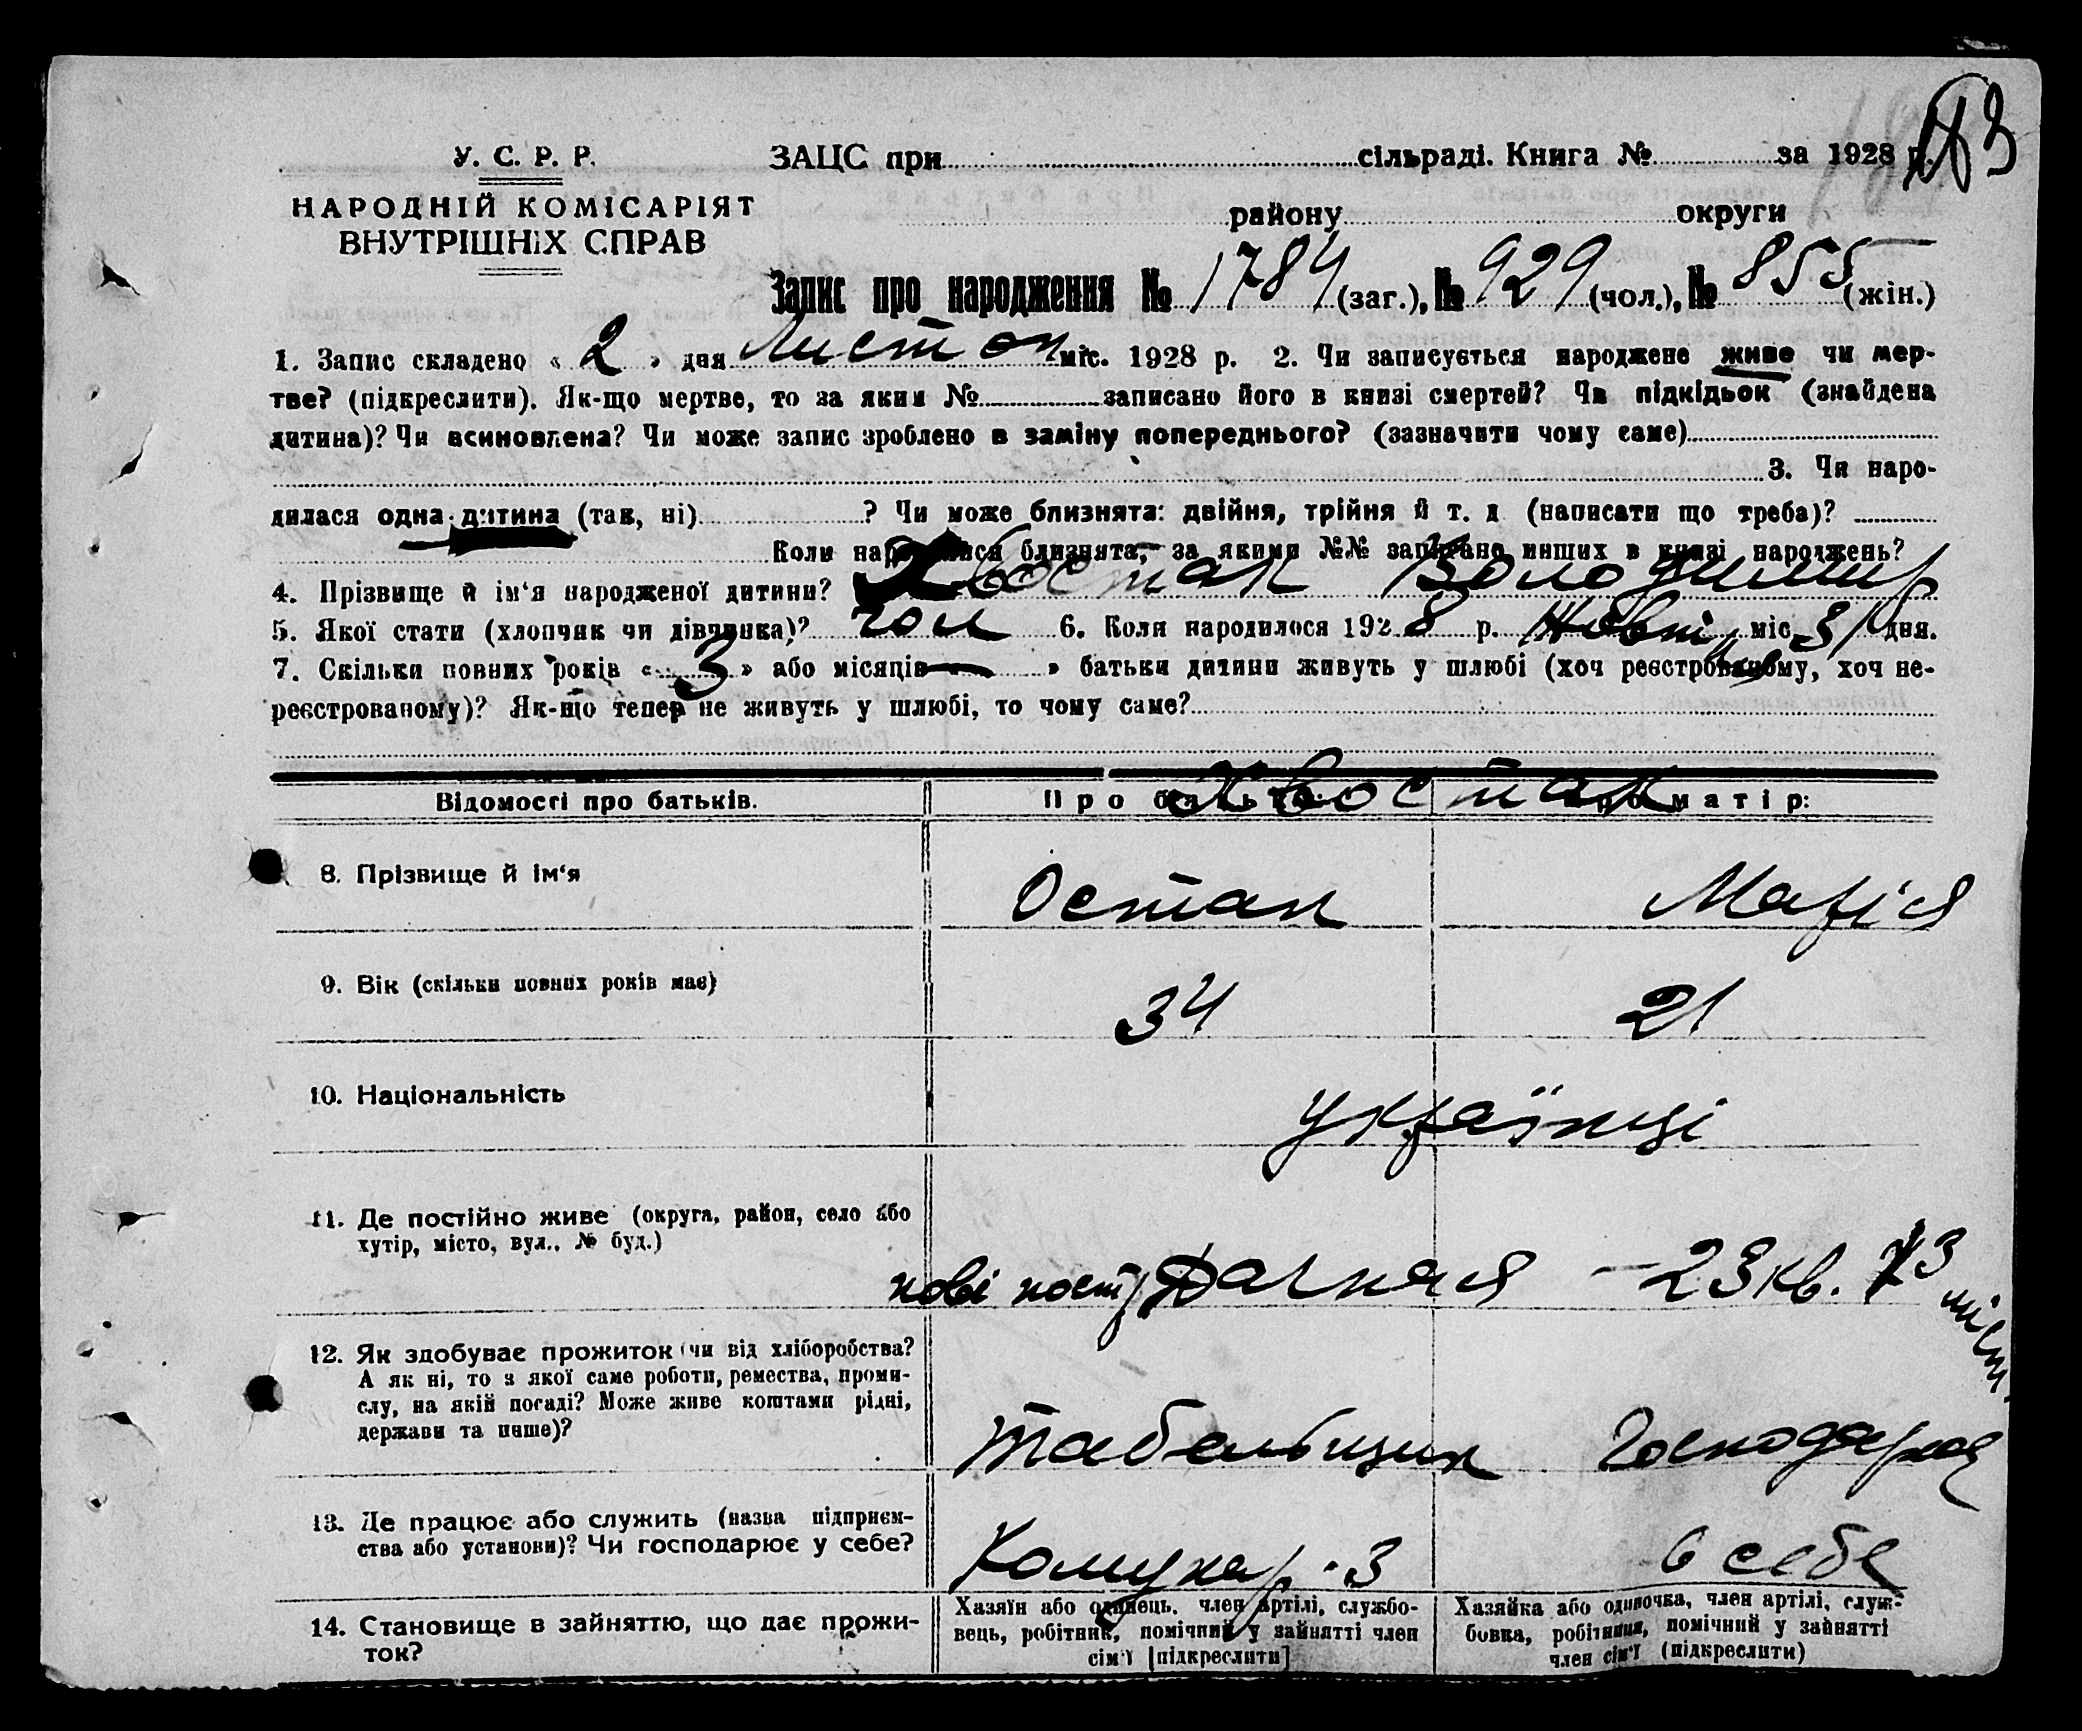 183
У. С. Р. Р.
ЗАЦС при сільраді. Книга № за 1928 р.
НАРОДНІЙ КОМІСАРІЯТ
ВНУТРІШНІХ СПРАВ
району округи
Запис про народження № 1784 (заг.), № 929 (чол.), № 855 (жін.)
1. Запис складено « 2 » дня Листоп міс. 1928 р. 2. Чи записується народжене живе чи мер-
тве? (підкреслити). Як-що мертве, то за яким № записано його в книзі смертей? Чи підкідьок (знайдена
дитина)? Чи всиновлена? Чи може запис зроблено в заміну попереднього? (зазначити чому саме)
3. Чи наро-
дилася одна дитина (так, ні) ? Чи може близнята: двійня, трійня й т. д (написати що треба)?
Коли народилися близнята, за якими №№ записано инших в книзі народжень?
4. Прізвище й ім‘я народженої дитини? Хвостак Володимир
5. Якої стати (хлопчик чи дівчинка)? чол 6. Коли народилося 1928 р. Жовтня міс 31 дня.
7. Скільки повних років « 3 » або місяців « — » батьки дитини живуть у шлюбі (хоч реєстрованому, хоч не-
реєстрованому)? Як-що тепер не живуть у шлюбі, то чому саме?
Хвостак
Відомості про батьків. Про батька: Про матір:
8. Прізвище й ім‘я Остап Марія
9. Вік (скільки повних років має) 34 21
10. Національність Українці
11. Де постійно живе (округа, район, село або
хутір, місто, вул., № буд.)
нові пост Дачная – 23 кв. 73
12. Як здобуває прожиток (чи від хліборобства?
А як ні, то з якої саме роботи, ремества, проми-
слу, на якій посаді? Може живе коштами рідні,
держави та инше)?
Табельщик Господарка
13. Де працює або служить (назва підприєм-
ства або установи)? Чи господарює у себе?
Комунар. 3 в себе
14. Становище в зайняттю, що дає прожи-
ток?
Хазяїн або одинець, член артілі, службо-
вець, робітник, помічний у зайнятті член
сім‘ї [підкреслити]
Хазяйка або одиночка, член артілі, служ-
бовка, робітниця, помічний у зайнятті
член сім‘ї (підкреслити)